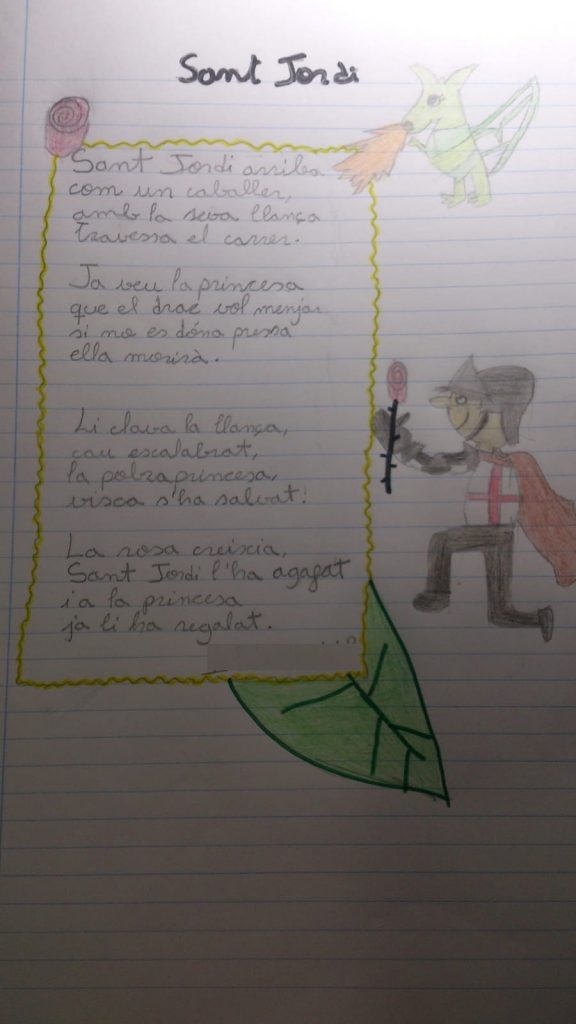 Sant Jordi
Sant Jordi arriba
com un caballer,
amb la seva llança
travessa el carrer.
Ja veu la princesa
que el drac vol menjar
si no es dóna pressa
ella morirà.
Li clava la llança,
cau escalabrat,
la pobra princesa,
visca s'ha salvat!
La rosa creixia,
Sant Jordi l'ha agafat
i a la princesa
ja li ha regalat.